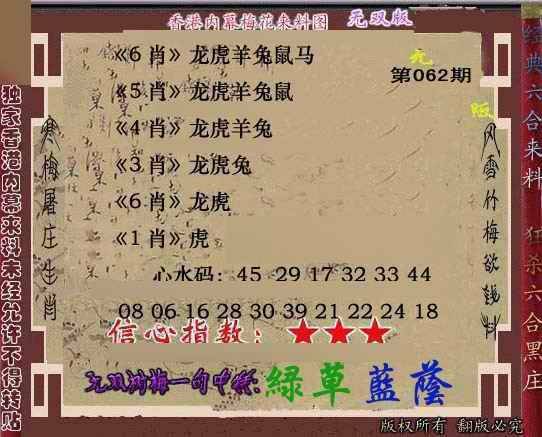 香港内幕梅花来料图 无双版
《6 肖》龙虎羊兔鼠马
第062期
《5 肖》龙虎羊兔鼠
《4 肖》龙虎羊兔
《3 肖》龙虎兔
《6 肖》龙虎
《1 肖》虎
心水码：45 29 17 32 33 44
08 06 16 28 30 39 21 22 24 18
信心指数：★★★
綠草藍蔭
独家香港内幕来料未经允许不得转贴
寒梅屠庄生肖
风雪竹梅欲钱料
经典六合来料
狂杀六合黑庄
版权所有 翻版必究